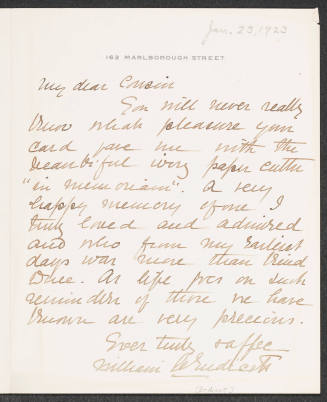 Jan. 23, 1923
163 MARLBOROUGH STREET
My dear Cousin
You will never really
know what pleasure your
card gave me with the
beautiful ivory paper cutter
"in memoriam". A very
happy memory of one I
truly loved and admired
and who from my earliest
days was more than kind
to me. As life goes on such
reminders of those we have
known are very precious.
Ever truly &
William Endicott